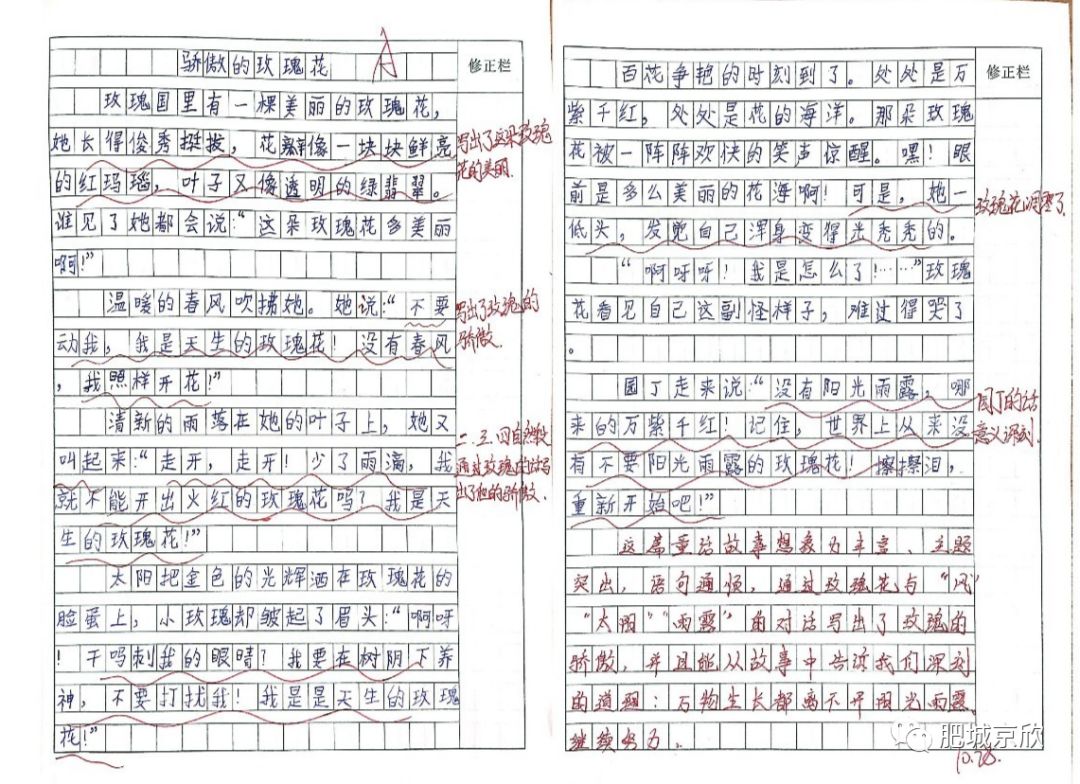 骄傲的玫瑰花
A
修正栏
玫瑰国里有一棵美丽的玫瑰花，
她长得俊秀挺拔，花瓣像一块块鲜亮
的红玛瑙，叶子又像透明的绿翡翠。
谁见了她都会说：“这朵玫瑰花多美丽
啊！”
写出了这朵玫瑰
花的美丽.
温暖的春风吹拂她。她说：“不要
动我，我是天生的玫瑰花！没有春风
，我照样开花！”
写出了玫瑰的
骄傲.
清新的雨落在她的叶子上，她又
叫起来：“走开，走开！少了雨滴，我
就不能开出火红的玫瑰花吗？我是天
生的玫瑰花！”
二.三.四自然段
通过玫瑰的话写
出了她的骄傲.
太阳把金色的光辉洒在玫瑰花的
脸蛋上，小玫瑰却皱起了眉头：“啊呀
！干吗刺我的眼睛？我要在树阴下养
神，不要打扰我！我是是天生的玫瑰
花！”
修正栏
百花争艳的时刻到了。处处是万
紫千红，处处是花的海洋。那朵玫瑰
花被一阵阵欢快的笑声惊醒。嘿！眼
前是多么美丽的花海啊！可是，她一
低头，发觉自己浑身变得光秃秃的。
玫瑰花凋零了.
“啊呀呀！我是怎么了！……”玫瑰
花看见自己这副怪样子，难过得哭了
。
园丁走来说：“没有阳光雨露，哪
来的万紫千红！记住，世界上从来没
有不要阳光雨露的玫瑰花！擦擦泪，
重新开始吧！”
园丁的话
意义深刻.
这篇童话故事想象力丰富、主题
突出，语句通顺，通过玫瑰花与“风”
“太阳”“雨露”的对话写出了玫瑰的
骄傲，并且能从故事中告诉我们深刻
的道理：万物生长都离不开阳光雨露，
继续努力。
10.28.
肥城京欣